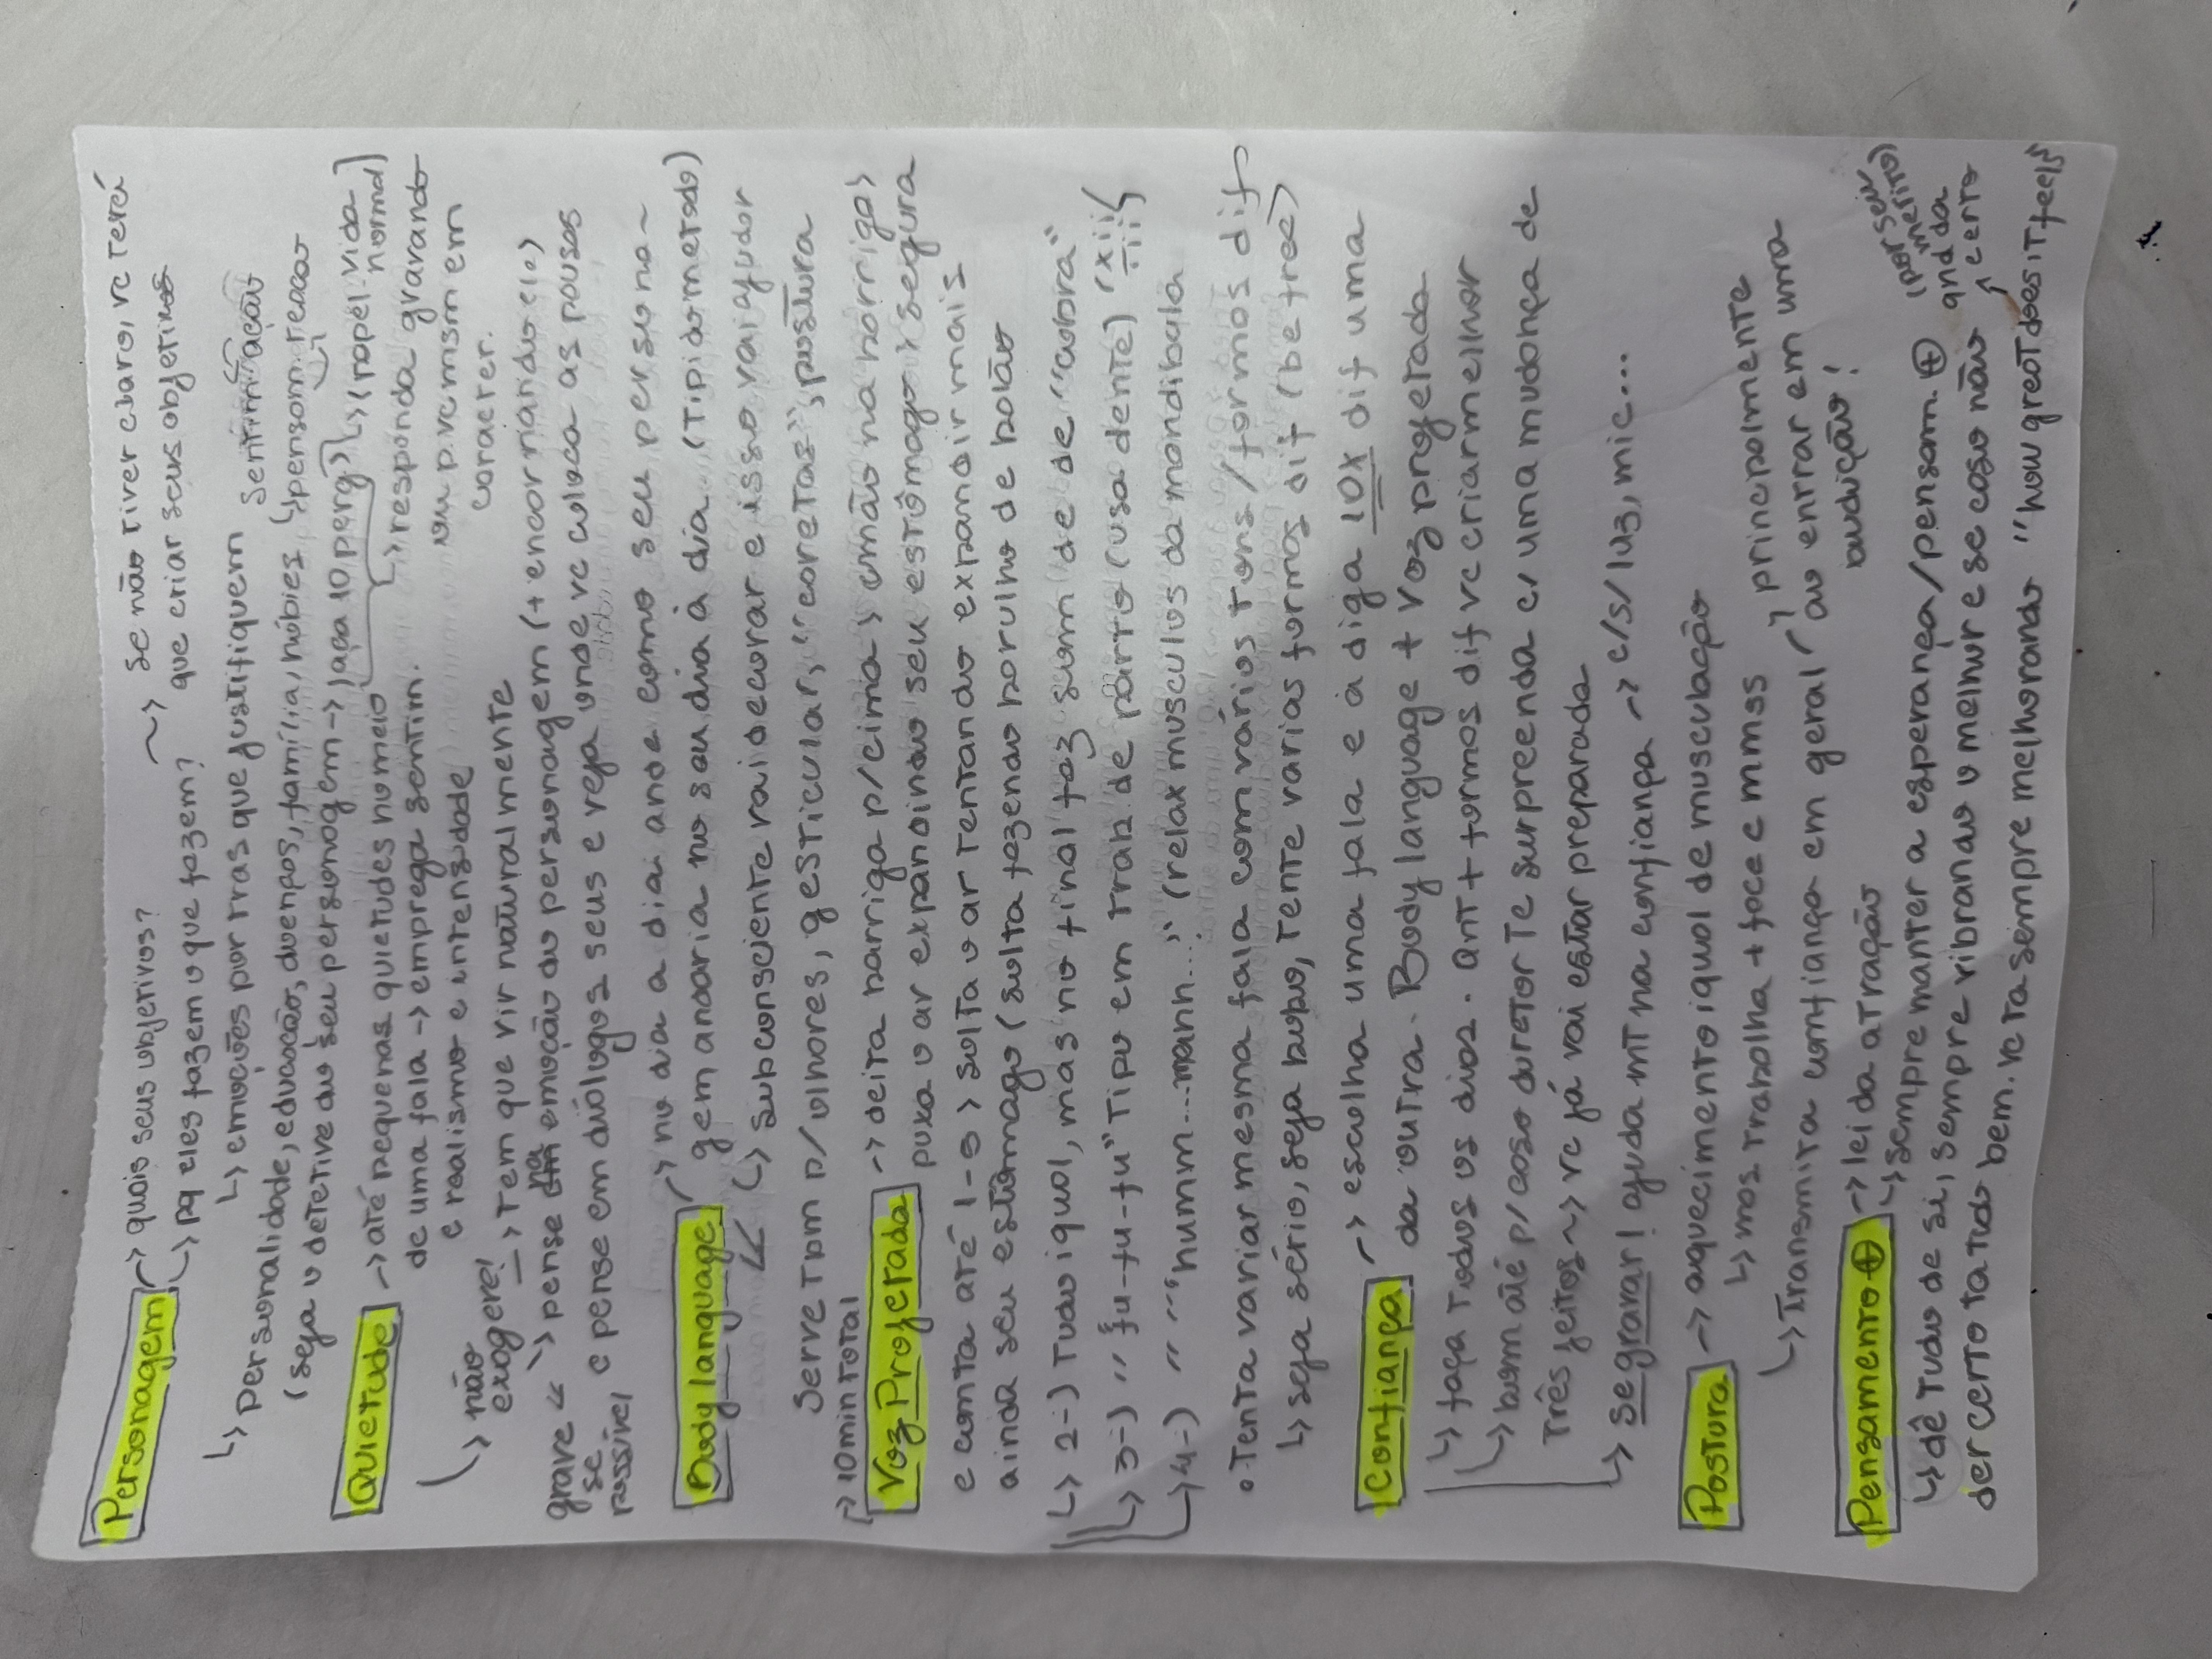 Personagem → quais seus objetivos? ~> se não tiver claro, vc terá
↳ pq eles fazem o que fazem? que criar seus objetivos
↳ emoções por tras que justifiquem
↳ personalidade, educação, doenças, família, hobies ↳ pensam. reação
(seja o detetive do seu personagem → faça 10 perg) ↳ (papel-vida normal)
Quietude → até pequenas quietudes no meio ↳ responda gravando
de uma fala → emprega sentim. ou pensam em
e realismo e intensidade caracter.
↳ não exagere! → tem que vir naturalmente
grave se possível << ↳ pense na emoção do personagem (+ encarnando ele)
e pense em diálogos seus e veja onde vc coloca as pausas
Body language → no dia a dia ande como seu persona-
gem andaria no seu dia à dia. (tipidometrado)
↳ subconsciente vai decorar e isso vai ajudar
serve tbm p/ olhares, gesticular, "caretas", postura
↳ 10min total
Voz Projetada → deita barriga p/ cima > (mão na barriga) >
puxa o ar expandindo seu estômago > segura
e conta até 1-5 > solta o ar tentando expandir mais
ainda seu estômago (solta fazendo barulho de balão
↳ 2-) Tudo igual, mas no final faz som de de "cobra"
↳ 3-) " "fu-fu-fu" tipo em trab. de parto (usa dente) "xiii
↳ 4-) " " "humm...manh..." (relax musculos da mandibala
• Tenta variar mesma fala com vários tons/formas dif
↳ seja sério, seja bobo, tente varias formas dif (be free)
Confiança → escolha uma fala e a diga 10x dif uma
da outra. Body language + voz projetada
↳ faça todos os dias. Qnt + formas dif vc criar melhor
↳ bom até p/ caso diretor te surpreenda c/ uma mudança de
três jeitos ~> vc já vai estar preparada
↳ se gravar! ajuda mt na confiança → c/s/ luz, mic...
Postura → aquecimento igual de musculação
↳ mas trabalha + face e mmss
↳ Transmita confiança em geral, principalmente
ao entrar em uma
audição!
Pensamento ⊕ → lei da atração
↳ sempre manter a esperança/pensam. ⊕ (por seu mérito)
↳ dê tudo de si, sempre vibrando o melhor e se caso não qnd da certo
der certo ta tudo bem. vc ta sempre melhorando "how great does it feels"